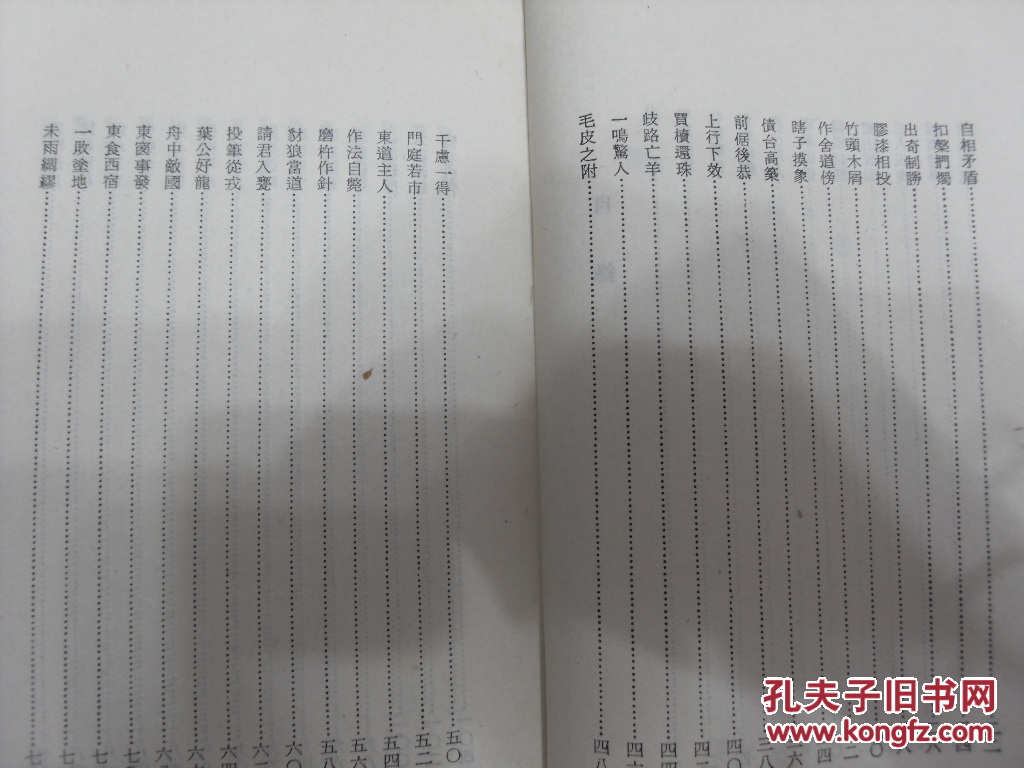 自相矛盾
扣槃捫燭
出奇制勝
膠漆相投
竹頭木屑
作舍道傍
瞎子摸象
債台高築 三八
前倨後恭 四〇
上行下效
買櫝還珠 四四
歧路亡羊
一鳴驚人 四六
毛皮之附 四八
千慮一得 五〇
門庭若市 五二
東道主人 五四
作法自斃
磨杵作針 五八
豺狼當道 六〇
請君入甕 六二
投筆從戎 六四
葉公好龍 六
舟中敵國 六
東窗事發 七
東食西宿 七
一敗塗地 七
未雨綢繆 七
孔夫子旧书网
KONGFZ.COM